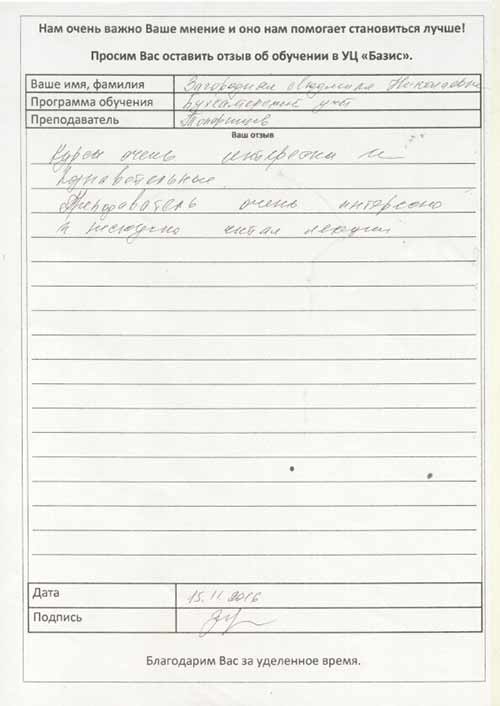 Нам очень важно Ваше мнение и оно нам помогает становиться лучше!
Просим Вас оставить отзыв об обучении в УЦ «Базис».
Ваше имя, фамилия Загородная Людмила Николаевна
Программа обучения Бухгалтерский учёт
Преподаватель Топорищев
Ваш отзыв
Курсы очень интересны и
познавательные.
Преподаватель очень интересно
и нескучно читал лекции
Дата 15.11.2016
Подпись
Благодарим Вас за уделенное время.